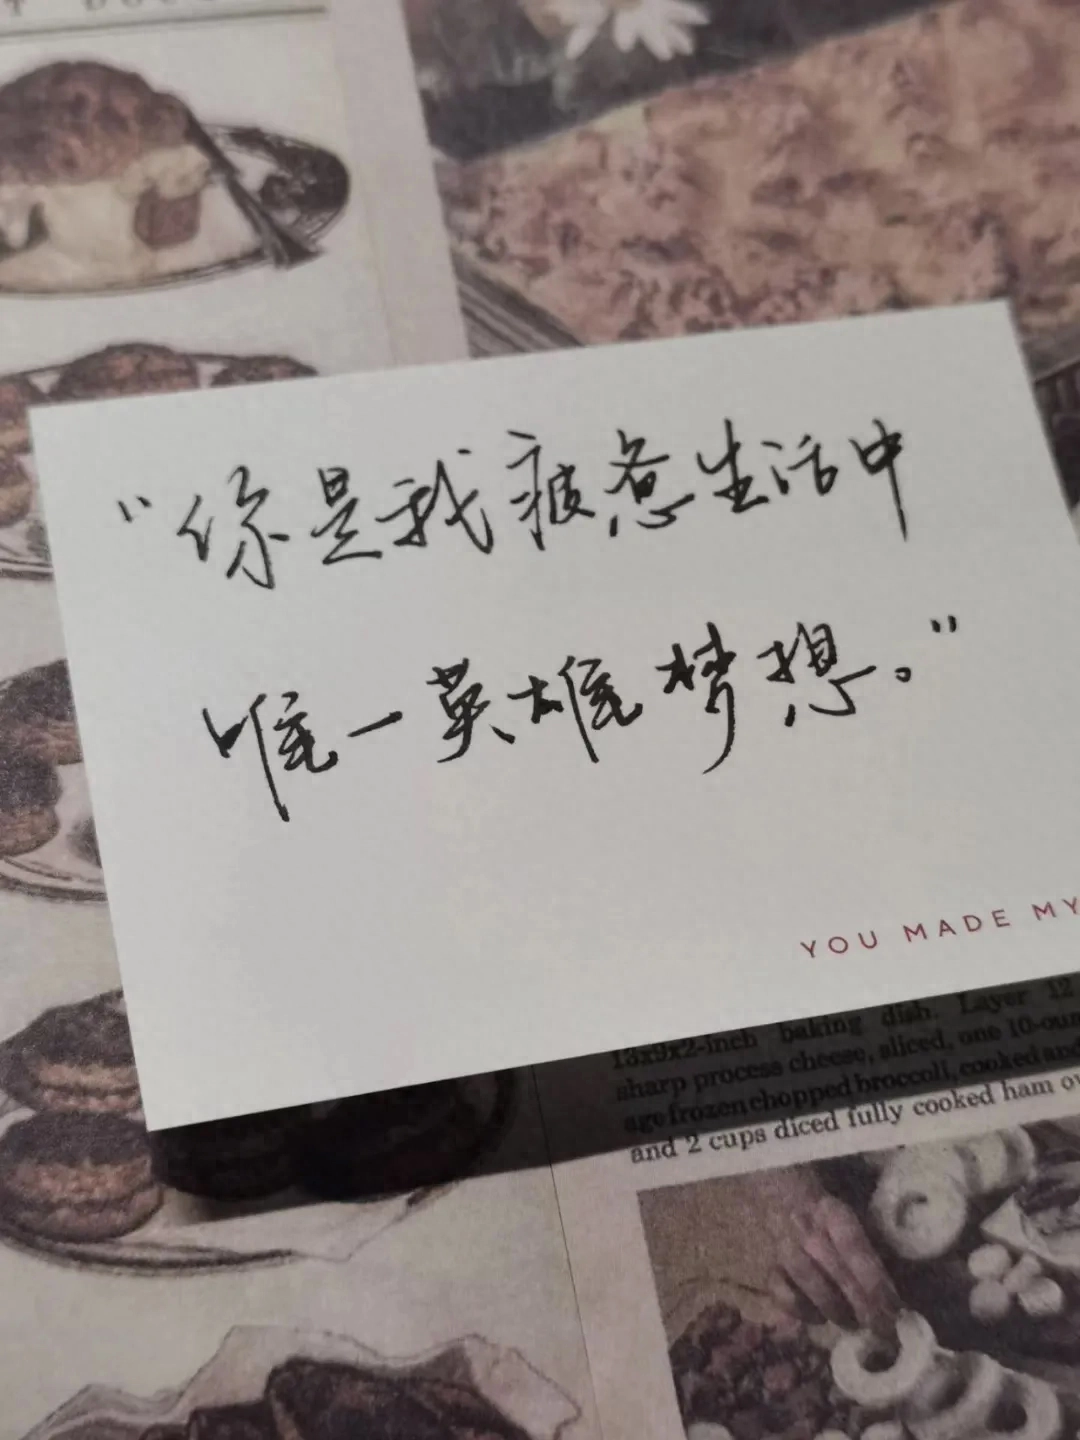 “你是我疲惫生活中
唯一英雄梦想。”
YOU MADE MY
13x9x2-inch baking dish. Layer 12
sharp process cheese, sliced, one 10-oun
age frozen chopped broccoli, cooked and
and 2 cups diced fully cooked ham ov